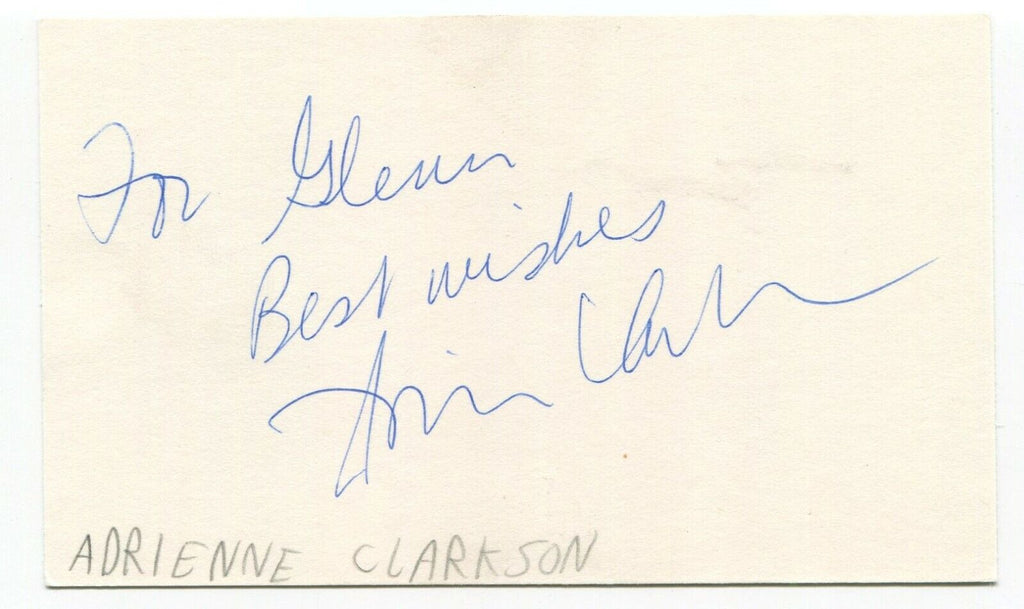 For Glenn
Best wishes
Adrienne Clarkson
ADRIENNE CLARKSON